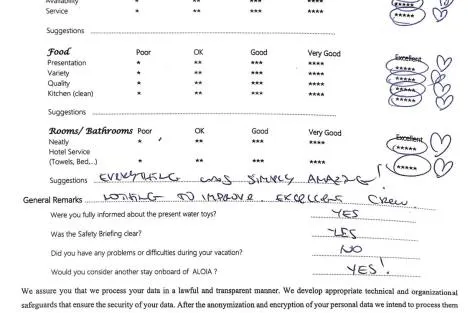 Availability
Service * ** *** **** *****
Suggestions
Food Poor OK Good Very Good Excellent
Presentation * ** *** **** *****
Variety * ** *** **** *****
Quality * ** *** **** *****
Kitchen (clean) * ** *** **** *****
Suggestions
Rooms/ Bathrooms Poor OK Good Very Good Excellent
Neatly * ** *** **** *****
Hotel Service
(Towels, Bed,..) * ** *** **** *****
Suggestions EVERYTHING WAS SIMPLY AMAZING!
General Remarks NOTHING TO IMPROVE. EXCELLENT CREW
Were you fully informed about the present water toys? YES
Was the Safety Briefing clear? YES
Did you have any problems or difficulties during your vacation? NO
Would you consider another stay onboard of ALOIA ? YES!
We assure you that we process your data in a lawful and transparent manner. We develop appropriate technical and organizational
safeguards that ensure the security of your data. After the anonymization and encryption of your personal data we intend to process them